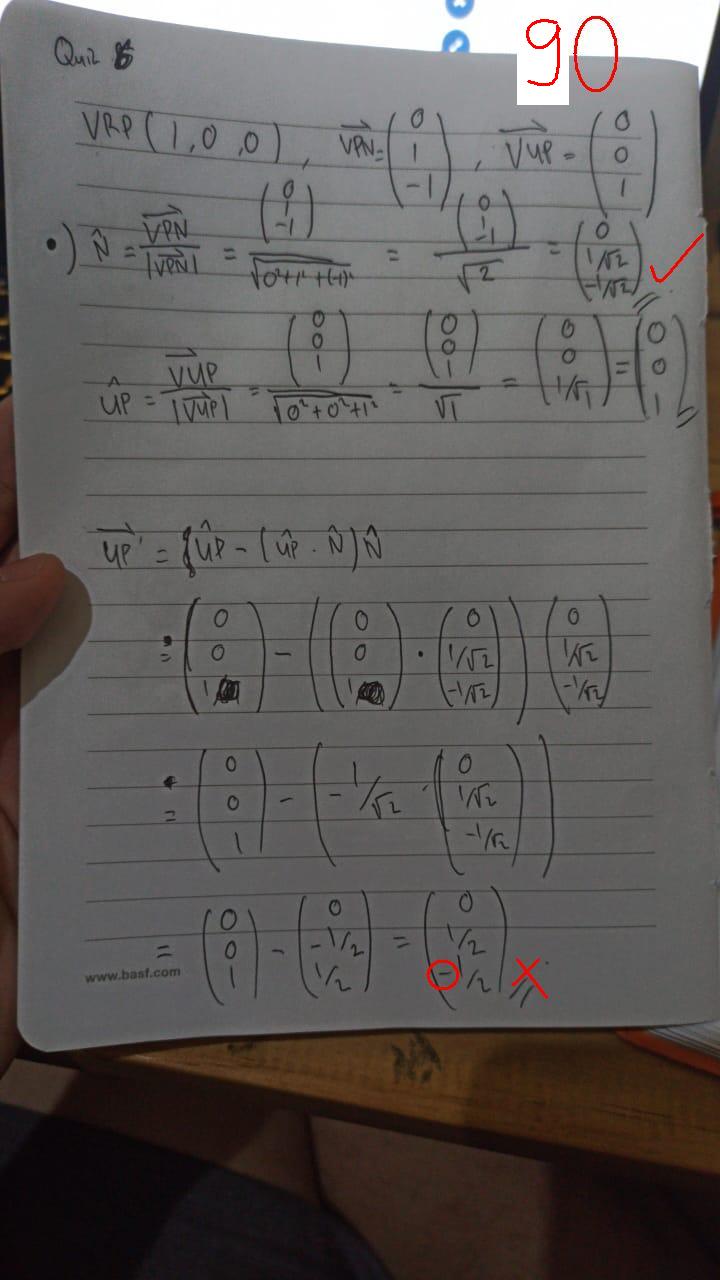 90
Quiz 6
VRP (1,0,0), VPN = (0 1 -1), VUP = (0 0 1)
•) N̂ = VPN/|VPN| = (0 1 -1)/√(0²+1²+(-1)²) = (0 1 -1)/√2 = (0 1/√2 -1/√2) ✓
ÛP = VUP/|VUP| = (0 0 1)/√(0²+0²+1²) = (0 0 1)/√1 = (0 0 1/√1) = (0 0 1)
UP' = ÛP - (ÛP · N̂)N̂
= (0 0 1) - ((0 0 1) · (0 1/√2 -1/√2)) (0 1/√2 -1/√2)
= (0 0 1) - (-1/√2 · (0 1/√2 -1/√2))
= (0 0 1) - (0 -1/2 1/2) = (0 1/2 -1/2) ✗
www.basf.com